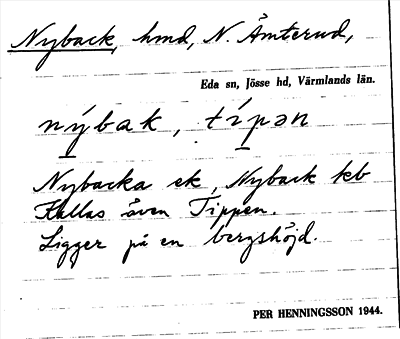 Nyback, hmd, N. Åmterud,
Eda sn, Jösse hd, Värmlands län.
nýbak, típən
Nybacka ek, Nyback kb
Kallas även Tippen.
Ligger på en bergshöjd.
PER HENNINGSSON 1944.